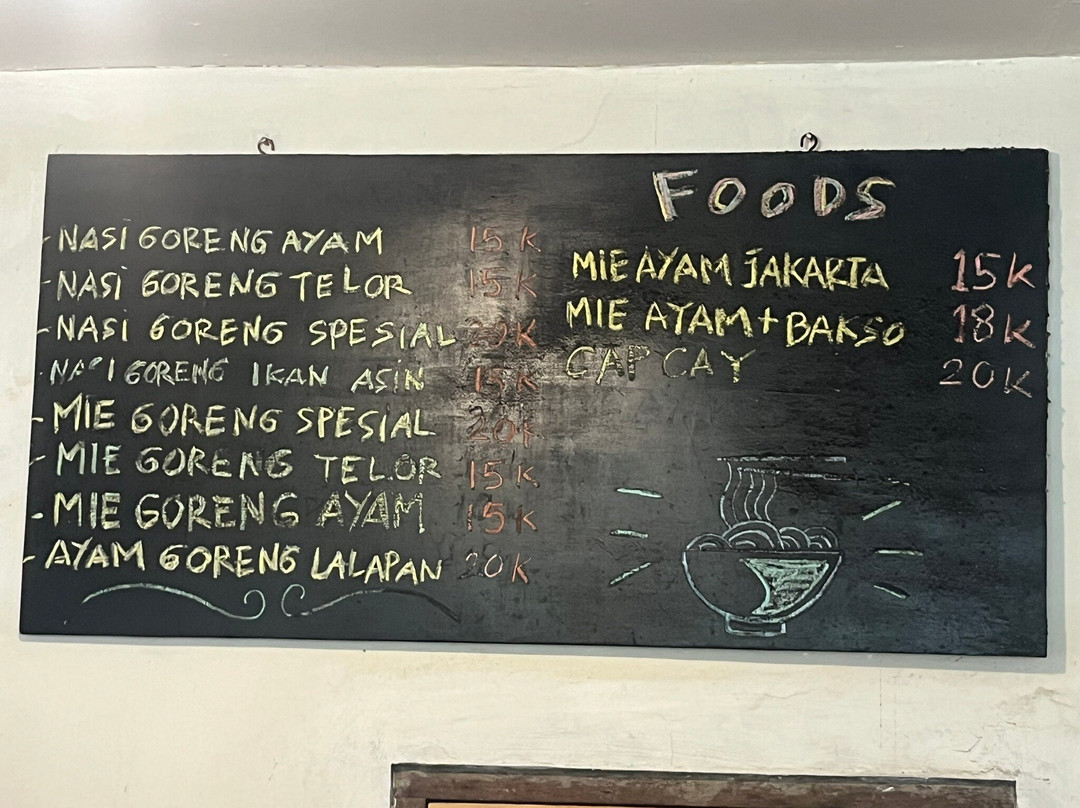 FOODS
- NASI GORENG AYAM 15K
- NASI GORENG TELOR 15K
- NASI GORENG SPESIAL 20K
- NASI GORENG IKAN ASIN 15K
- MIE GORENG SPESIAL 20K
- MIE GORENG TELOR 15K
- MIE GORENG AYAM 15K
- AYAM GORENG LALAPAN 20K
MIE AYAM JAKARTA 15K
MIE AYAM + BAKSO 18K
CAP CAY 20K